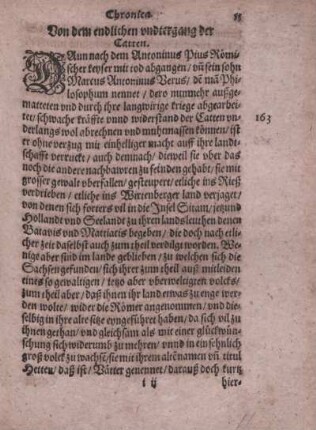 Chronica. 55
Von dem endlichen vndtergang der
Catten.
DAun nach dem Antoninus Pius Römi-
scher keyser mit tod abgangen / vñ sein sohn
Marcus Antoninus Verus / dē mā Phi-
losophum nennet / dero nunmehr außge-
matteten vnd durch ihre langwirige kriege abgearbei-
te / schwache kräffte vnnd widerstand der Catten vn-
derlangs wol abrechnen vnd muhtmassen können / ist
er ohne verzug mit einhelliger macht auff ihre landt-
schafft verruckt / auch demnach / dieweil sie vber das
noch die andere nachbawren zu feinden gehabt / sie mit
grosser gewalt vberfallen / gesteupert / etliche ins Rieß
verdrieben / etliche ins Wirtenberger land verjaget /
von dienen sich forters vil in die Insel Sitam / jetzund
Hollandt vnd Seelandt zu ihren landsleuthen denen
Batavis vnd Mattiatis begeben / die doch nach etli-
cher zeit daselbst auch zum theil verdilgt worden. We-
nige aber sind im lande geblieben / zu welchen sich die
Sachsen gefunden / sich ihrer zum theil auß mitleiden
eines so gewaltigen / jetzo aber vberweltigten volcks /
zum theil aber / daß ihnen ihr land etwas zu enge wer-
den wolte / wider die Römer angenommen / vnd die-
selbig in ihre alte sitze eyngeführt haben / da sich vil zu
ihnen gethan / vnd gleichsam als mit einer glückwün-
schung sich widerumb zu mehren / vnnd in ein sehnlich
groß volck zu wachsē / sie mit ihrem altē namen vñ titul
Hetten / daß ist / Vätter genennet / darauß doch kurtz
i ij hier-
163